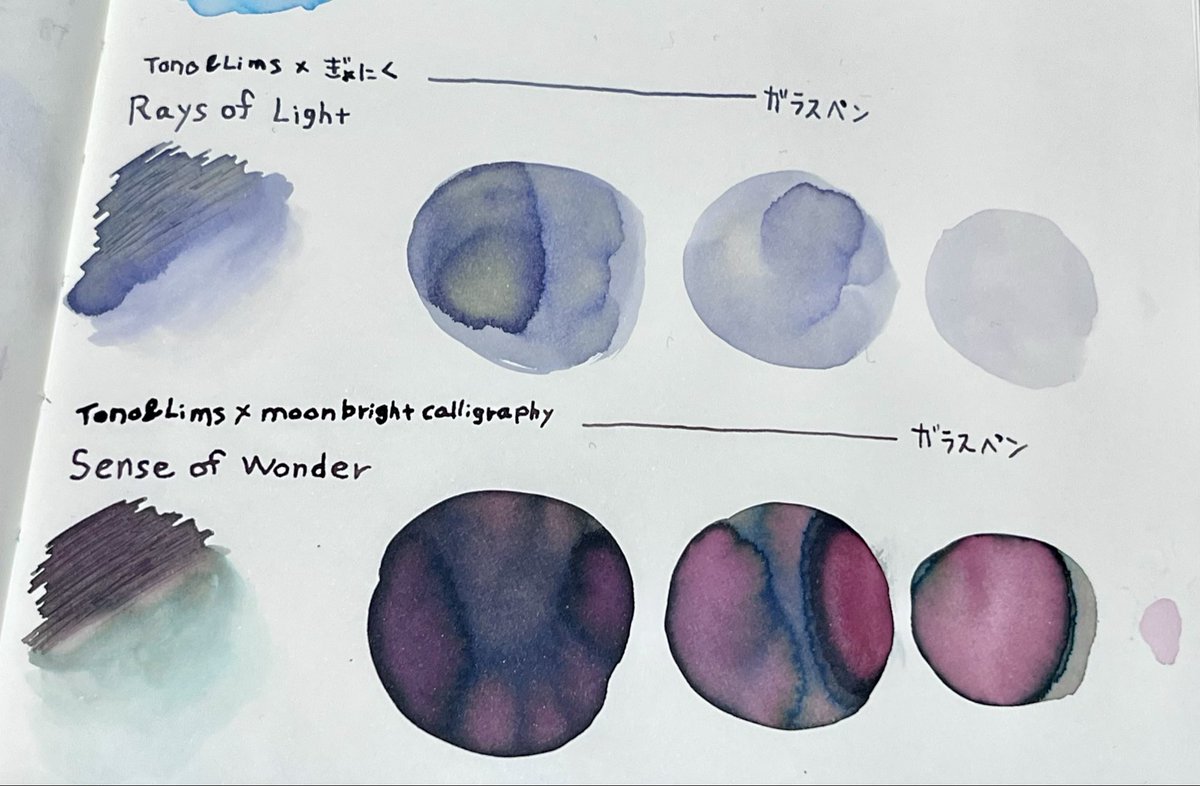 Tono&Lims × ぎょにく
ガラスペン
Rays of Light
Tono&Lims × moonbright calligraphy
ガラスペン
Sense of Wonder